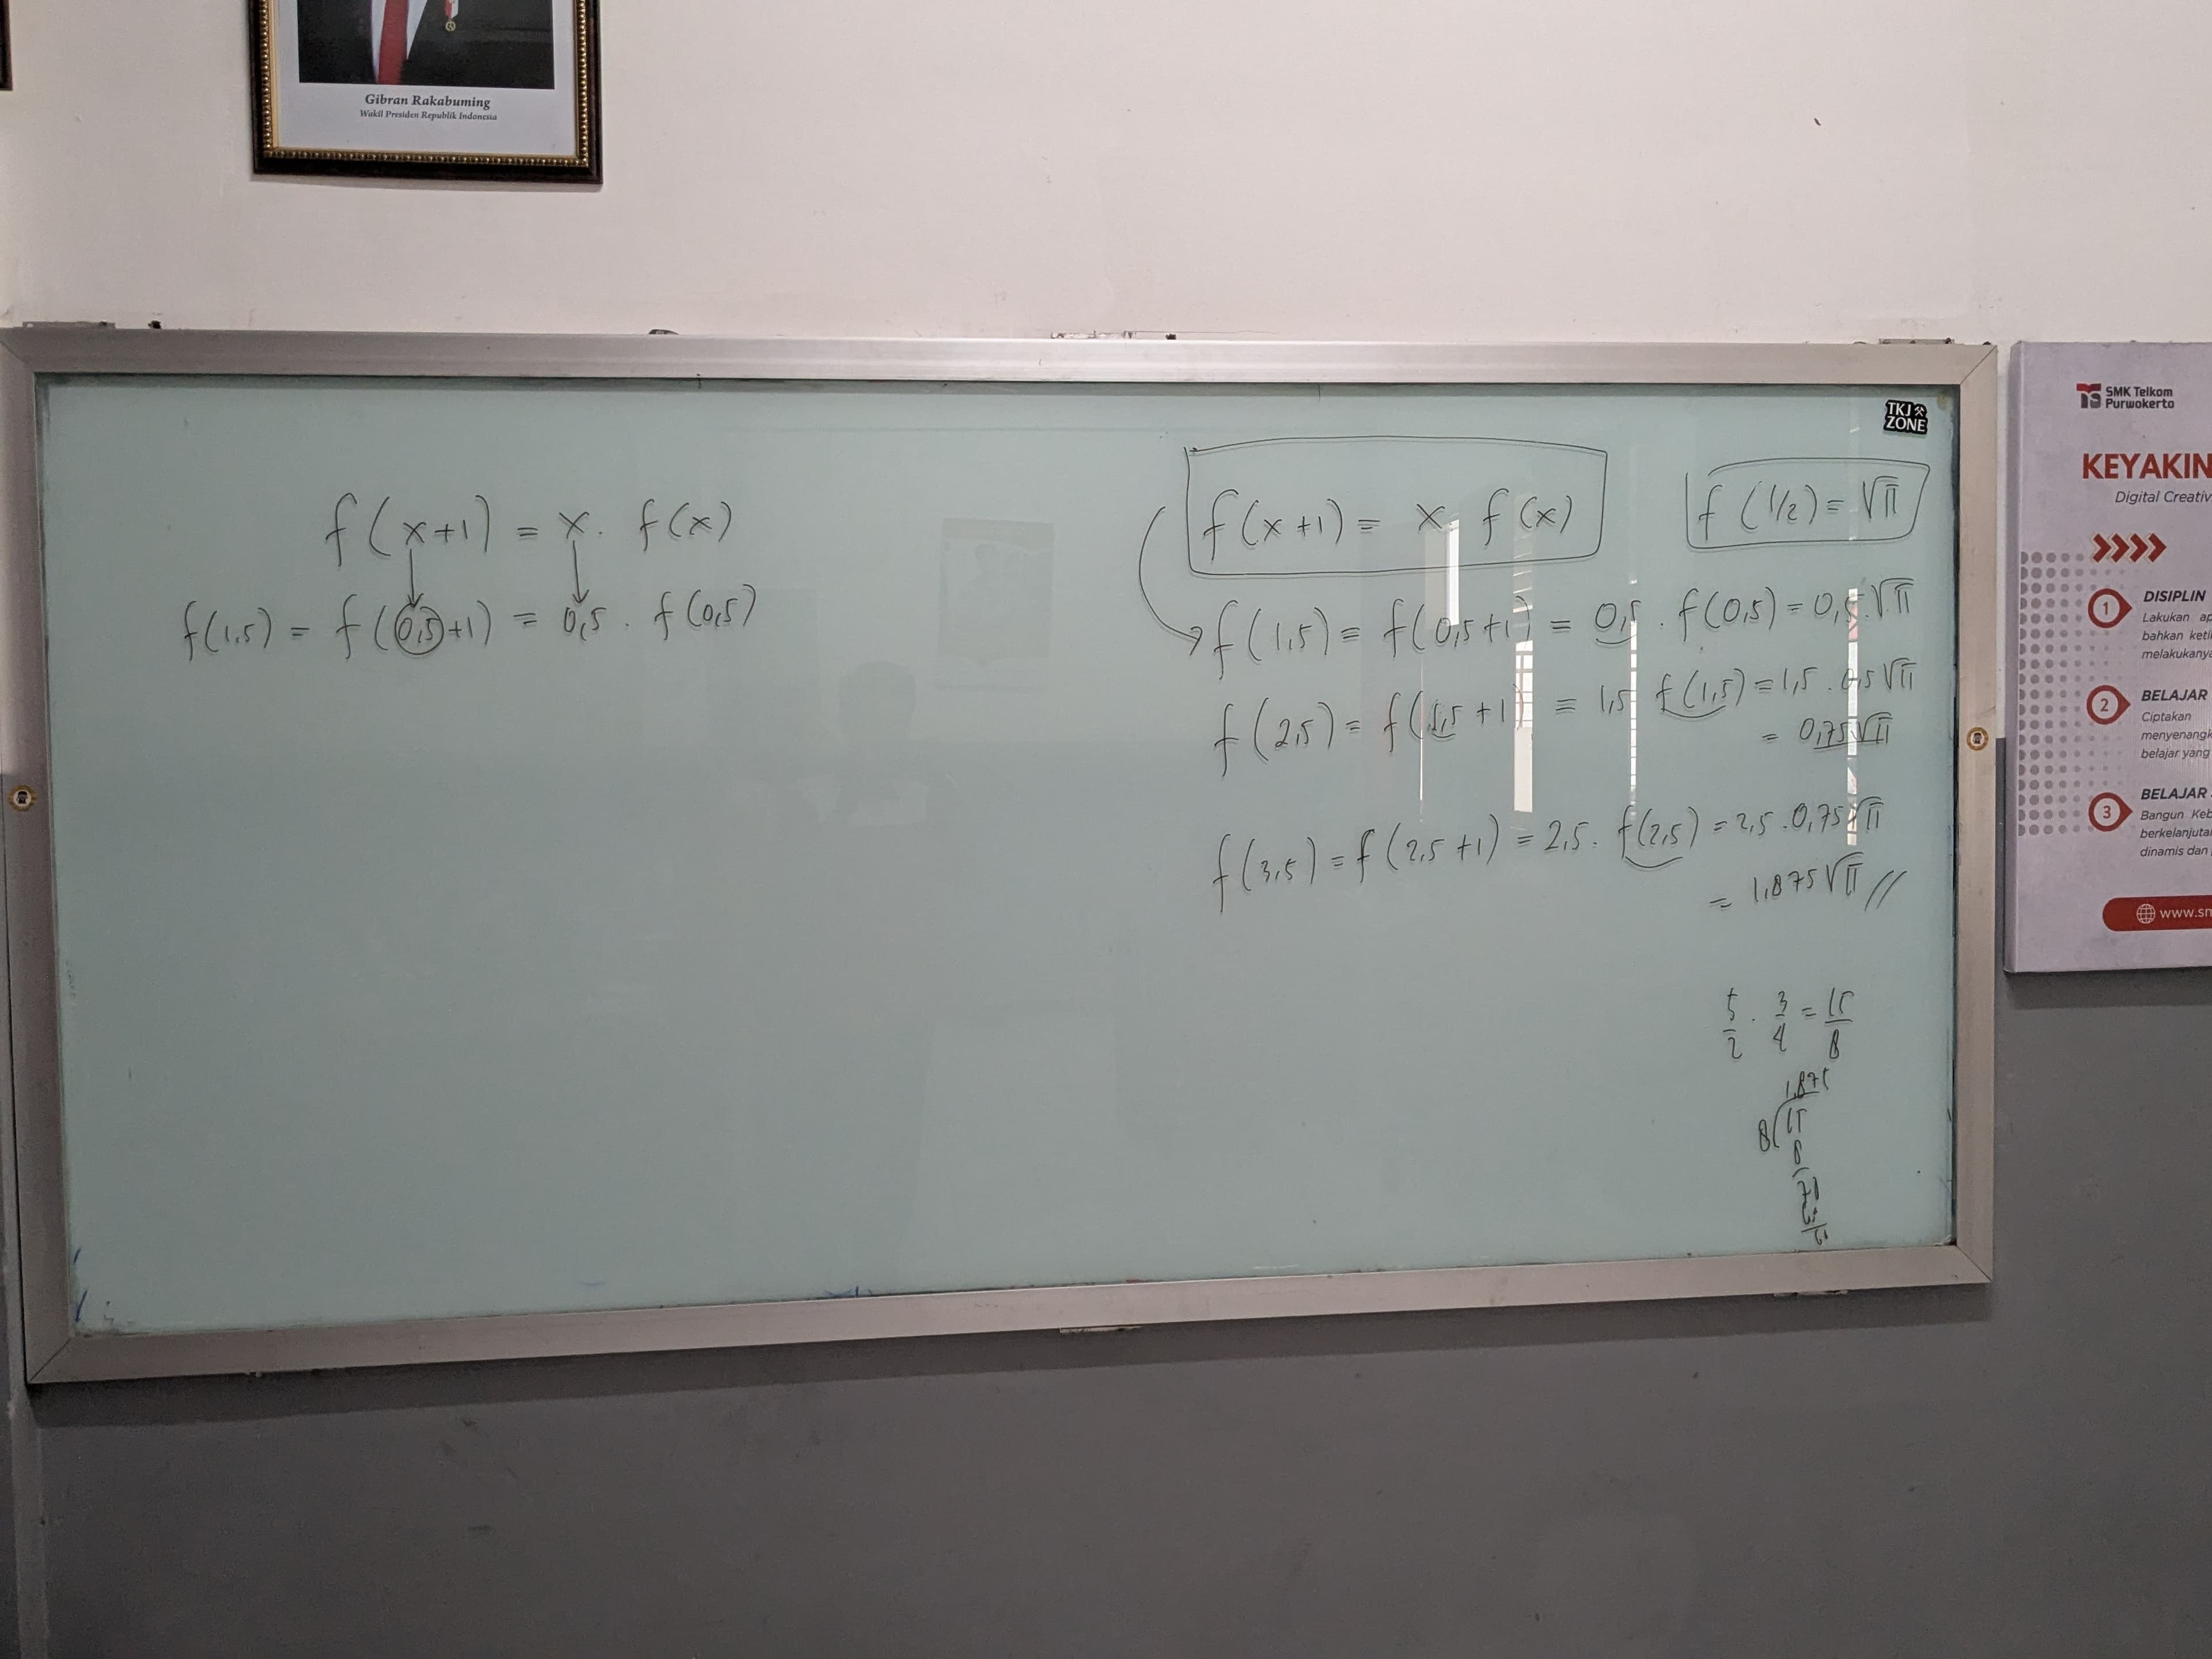 Gibran Rakabuming
Wakil Presiden Republik Indonesia
TKJ
ZONE
f(x+1) = x . f(x)
f(1,5) = f(0,5+1) = 0,5 . f(0,5)
f(x+1) = x . f(x)
f(1/2) = √π
f(1,5) = f(0,5+1) = 0,5 . f(0,5) = 0,5 . √π
f(2,5) = f(1,5+1) = 1,5 f(1,5) = 1,5 . 0,5√π
= 0,75√π
f(3,5) = f(2,5+1) = 2,5 . f(2,5) = 2,5 . 0,75√π
= 1,875√π //
5/2 . 3/4 = 15/8
1,875
8 15
8
SMK Telkom
Purwokerto
KEYAKIN
Digital Creativ
1 DISIPLIN
Lakukan ap
bahkan keti
melakukanya
2 BELAJAR
Ciptakan
menyenangk
belajar yang
3 BELAJAR
Bangun Keb
berkelanjutan
dinamis dan
www.sm